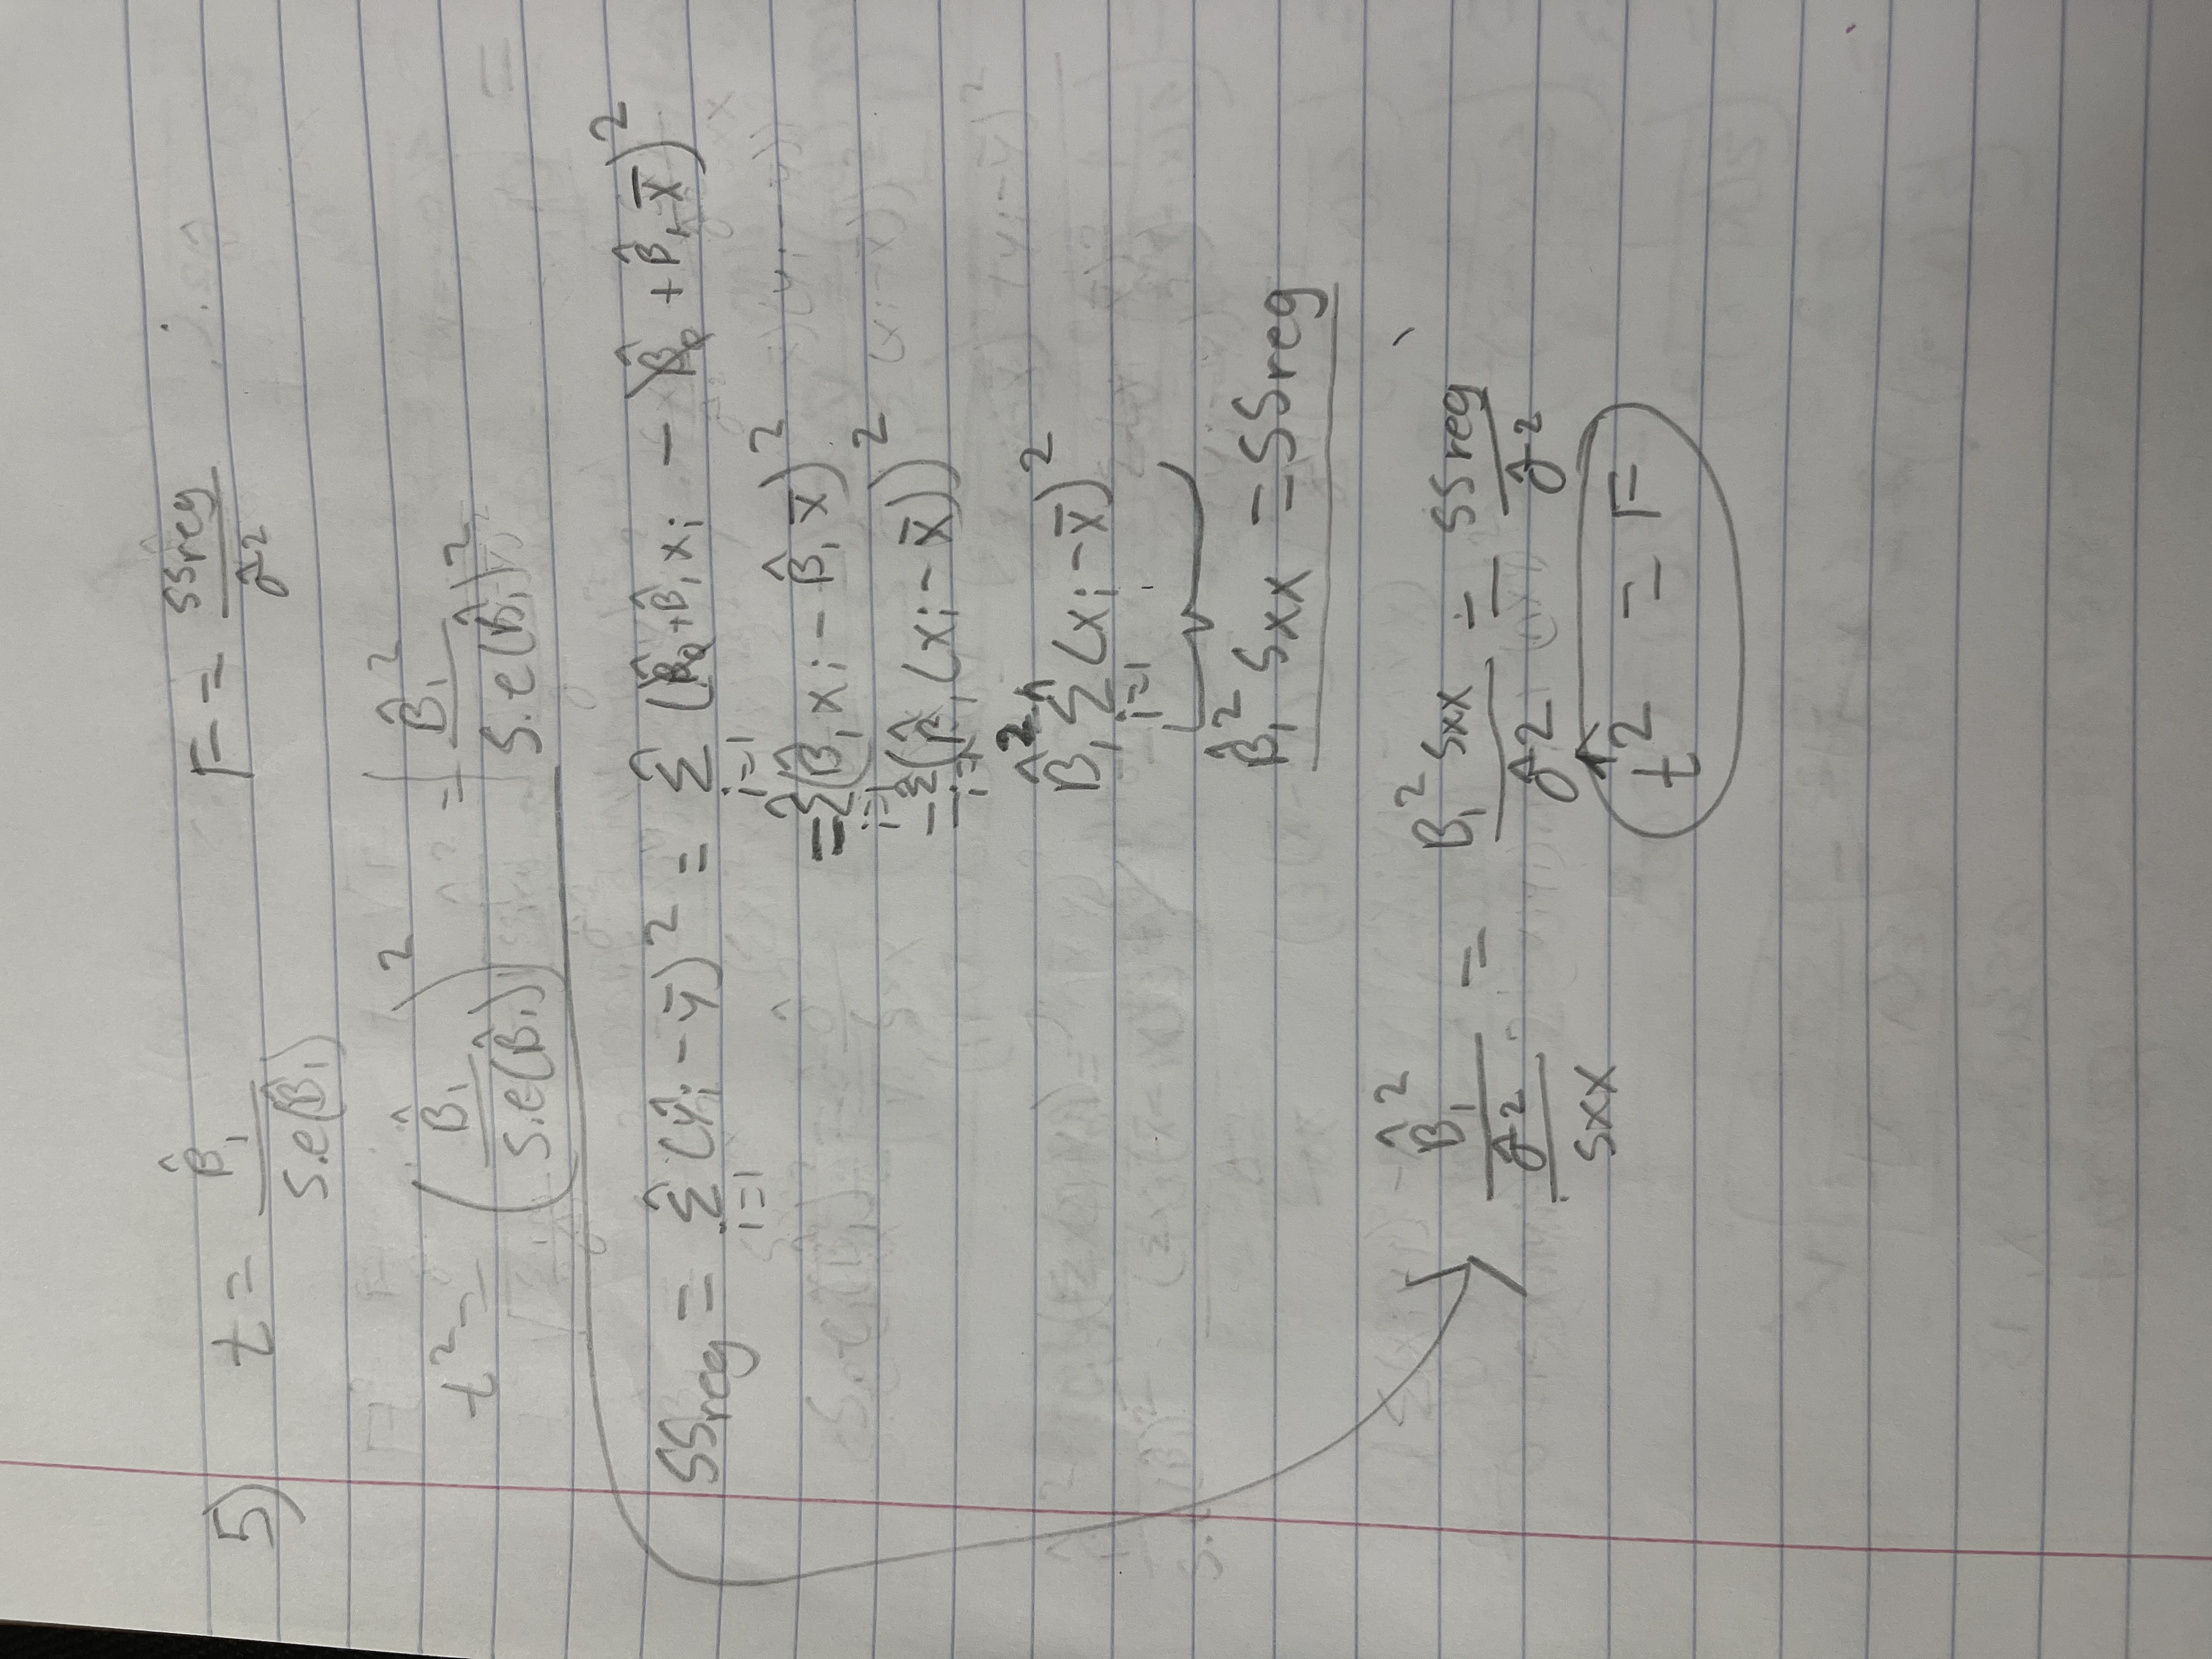 5) t = β̂₁ / s.e(β̂₁)    F = SSreg / σ̂²
t² = (β̂₁ / s.e(β̂₁))² = β̂₁² / s.e(β̂₁)²
SSreg = Σⁿᵢ₌₁ (ŷᵢ - ȳ)² = Σⁿᵢ₌₁ (β̂₀ + β̂₁xᵢ - β̂₀ + β̂₁x̄)²
= Σⁿᵢ₌₁ (β̂₁xᵢ - β̂₁x̄)²
= Σⁿᵢ₌₁ (β̂₁(xᵢ - x̄))²
β̂₁² Σⁿᵢ₌₁ (xᵢ - x̄)²
β̂₁² Sxx = SSreg
β̂₁² / (σ̂² / Sxx) = β₁² Sxx / σ̂² = SSreg / σ̂²
t² = F